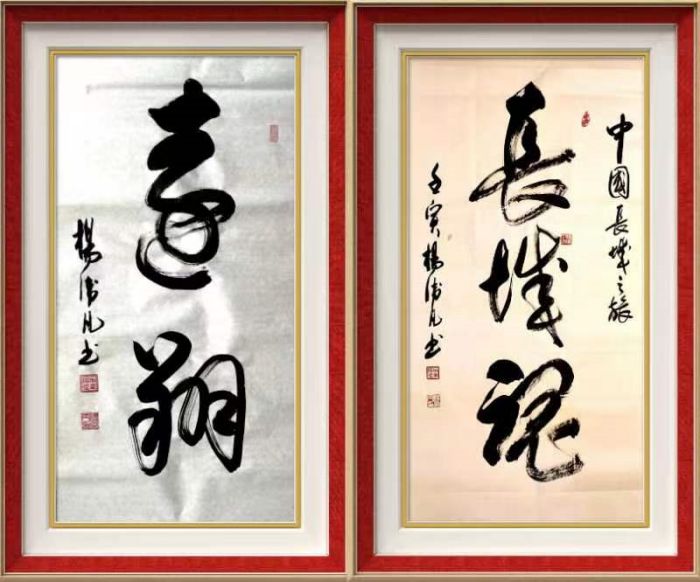 遠翔
楊凡书
中國長城之旅
長城魂
壬寅楊凡书